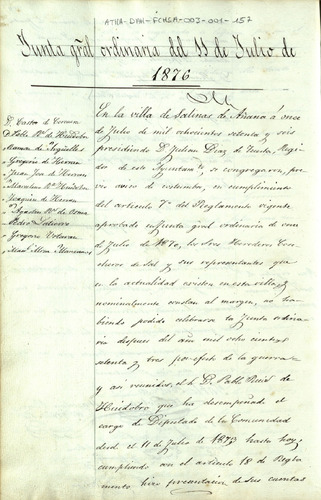 ATHA-DAH-FCHSA-003-001-157
Junta gral ordinaria del 11 de Julio de
1876
D. Castor de
D. Pablo Rz. de Huidobro
" Gregorio de Herran
" Juan José de Herran
" Marcelino Rz. de Huidobro
" Joaquin de Herran
" Agustin Rz. de
" Pedro
" Gregorio
En la villa de Salinas de Añana á once
de Julio de mil ochocientos setenta y seis
presidiendo D. Julian Diaz de Regi-
dor de este Ayuntamto. se congregaron, pre-
vio aviso de costumbre, en cumplimiento
del articulo 7º del Reglamento vigente
aprobado en Junta gral ordinaria de once
de Julio de 1870, los Sres Herederos Cose-
cheros de Sal y sus representantes que
en la actualidad existen en esta villa, y
nominalmente constan al margen, no ha-
biendo podido celebrarse la Junta ordina-
ria despues del año mil ochocientos
setenta y tres por efecto de la guerra
y asi reunidos, el Sr. D. Pablo Ruiz de
Huidobro que ha desempeñado el
cargo de Diputado de la Comunidad
desde el 11 de Julio de 1873 hasta hoy,
cumpliendo con el articulo 18 de Regla-
mento hizo presentacion de sus cuentas